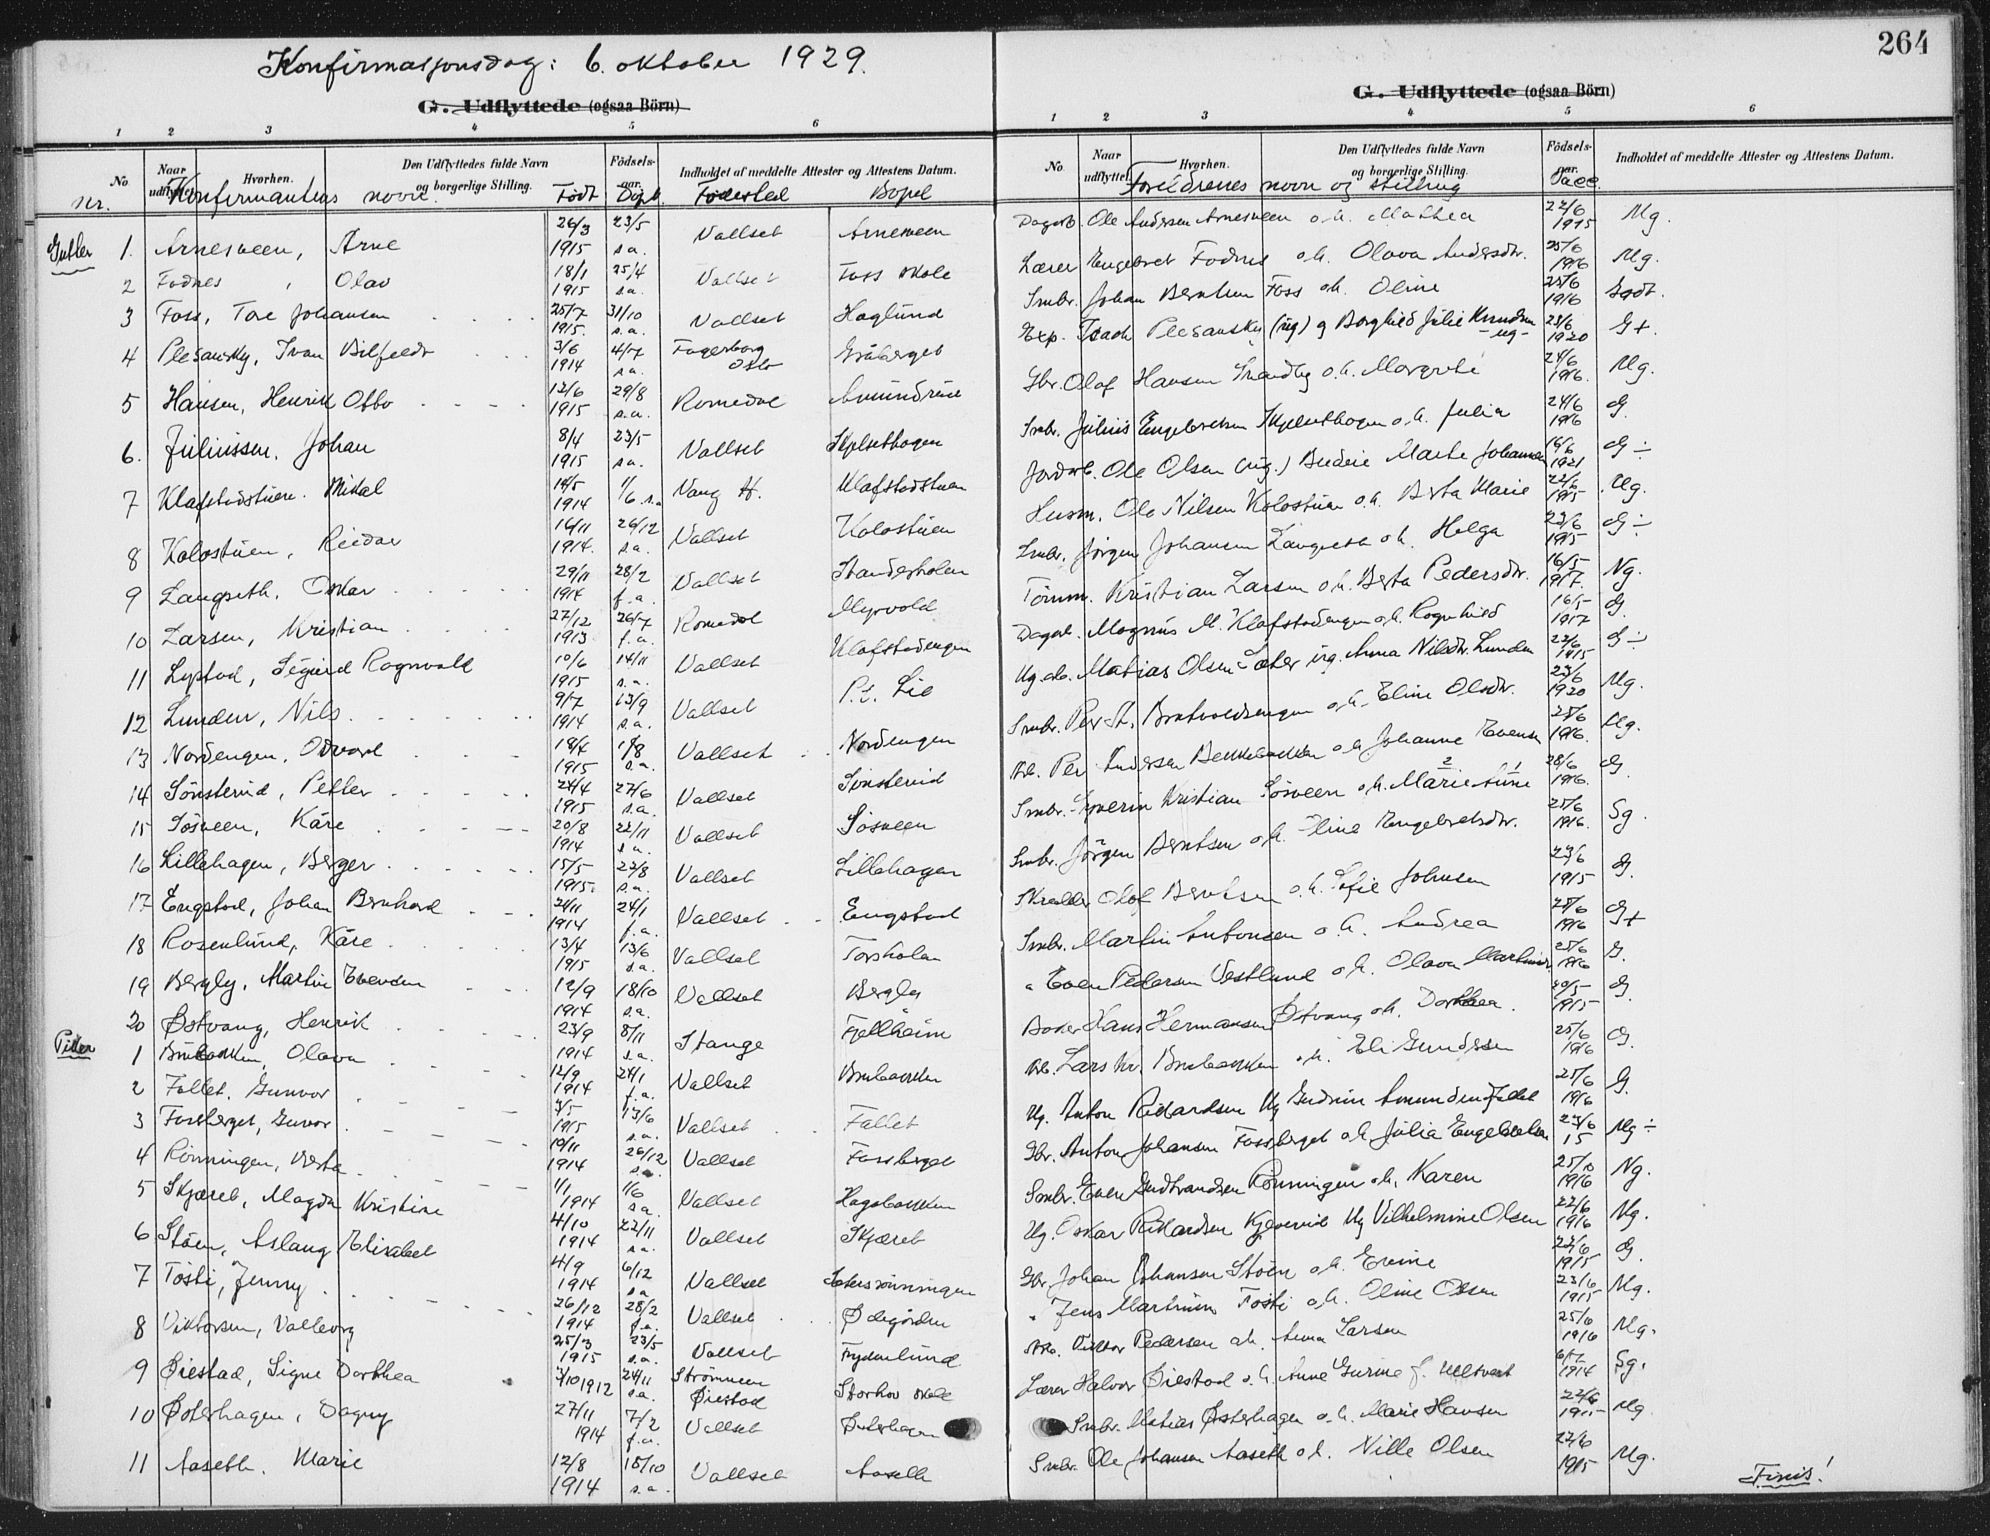 264
Konfirmasjonsdag: 6. oktober 1929.
G. Udflyttede (ogsaa Börn)
G. Udflyttede (ogsaa Börn)
1 2 3 4 5 6
1 2 3 4 5 6
No Naar udflyttet Hvorhen. Den Udflyttedes fulde Navn og borgerlige Stilling. Födsels-aar. Indholdet af meddelte Attester og Attestens Datum.
No. Naar udflyttet Hvorhen. Den Udflyttedes fulde Navn og borgerlige Stilling. Födsels-aar. Indholdet af meddelte Attester og Attestens Datum.
nr. Konfirmantens navn. Født Døpt Fødested Bopel
Foreldrenes navn og stilling Vacc.
Gutter 1. Arnesveen, Arne 26/3 1915 23/5 s.a. Vallset Arnesveen Dagarb. Ole Andersen Arnesveen o.h. Mathea 22/6 1915 Mg.
2 Fodnes, Olav 18/1 1915 25/4 s.a. Vallset Foss skole Lærer Engebret Fodnes o.h. Olava Andersdtr. 25/6 1916 Mg.
3 Foss, Tore Johansen 25/7 1915. 31/10 s.a. Vallset Haglund Smbr. Johan Berntsen Foss o.h. Oline 25/6 1916 Godt.
4 Plesansky, Ivan Bilfeldt 3/6 1914 4/7 s.a. Fagerborg Oslo Gråberget Exp. Isach Plesansky (ug) og Borghild Julie Knudsen -ug- 23/6 1920 G+
5 Hansen, Henrik Otto 12/6 1915 29/8 s.a. Romedal Amundrud Gbr. Olaf Hansen Strandby o.h. Margrete 24/6 1916. Mg.
6. Juliussen, Johan 8/4 1915 23/5 s.a. Vallset Skjelsethagen Smbr. Julius Engebretsen Skjelsethagen o.h. Julia 24/6 1916 G.
7 Klafstadstuen. Mikal 14/5 1914 1/6 s.a. Vang H. Klafstadstuen Jordarb. Ole Olsen (ug.) Budeie Marte Johannsen 16/6 1921 G ÷
8 Kolostuen, Reidar 16/11 1914. 26/12 s.a. Vallset Kolostuen Husm. Ole Nilsen Kolostuen o.h. Berta Marie 22/6 1915 Mg.
9 Langseth, Oskar 29/11 1914 28/2 f.a. Vallset Standesholen Smbr. Jørgen Johansen Langseth o.h. Helga 23/6 1915 G ÷
10 Larsen, Kristian 27/12 1913 26/7 f.a. Romedal Myrvold Tømm. Kristian Larsen o.h. Berta Pedersdtr. 16/5 1917. Ng.
11 Lystad, Sigurd Ragnvald 10/6 1915 14/11 s.a. Vallset Klafstadengen Dagarb. Magnus M. Klafstadengen o.h. Ragnhild 16/5 1917 G.
12 Lunden, Nils 9/7 1914 13/9 s.a. Vallset P.t. Lie Ug. Matias Olsen Sæter ug. Anna Nilsdtr. Lunden 22/6 1915 G ÷
13 Nordengen, Odvard 18/4 1915 1/8 s.a. Vallset Nordengen Smbr. Per St. Bratvoldsengen o.h. Eline Olsdtr. 23/6 1920 Mg.
14 Sønsterud, Petter 24/4 1915 27/6 s.a. Vallset Sønsterud Per Andersen Bekkebakken o.h. Johanne Evensen 25/6 1916. Mg.
15 Søsveen, Kåre 20/8 1914 22/11 s.a. Vallset Søsveen Smbr. Syverin Kristian Søsveen o.h. Marie Aune 28/6 1916. G.
16 Lillehagen, Berger 15/5 1915. 22/8 s.a. Vallset Lillehagen Smbr. Jörgen Berntsen o.h. Eline Engebretsdtr. 25/6 1916. Sg.
17 Engstad, Johan Bernhard 24/11 1914 24/1 f.a. Vallset Engstad Skredder Olof Berntsen o.h. Sofie Johnsen 23/6 1915 G.
18 Rosenlund, Kåre 13/4 1915 13/6 s.a. Vallset Torsholen Smbr. Martin Antonsen o.h. Andrea 25/6 1916 G+
19 Bergly, Martin Evensen 12/9 1914 18/10 s.a. Vallset Bergly " Even Pedersen Vestlund o.h. Olava Martinsdr 25/6 1916 G.
20 Østvang, Henrik 23/9 1914 8/11 s.a. Stange Fjellheim Baker Hans Hermansen Østvang o.h. Dorthea. 20/5 1915 G.
Piker 1 Brubakken, Olava 12/9 1914 24/1 f.a. Vallset Brubakken Lars Kr. Brubakken o.h. Eli Gundersen 25/6 1916 G.
2 Fallet, Gunvor 3/5 1915 13/6 s.a. Vallset Fallet Ug. Anton Rikardsen Ug Gudrun Amundsen Fallet 25/6 1916 G.
3 Fossberget, Gunvor 19/11 1914 26/12 s.a. Vallset Fossberget Gbr. Anton Johansen Fossberget o.h. Julia Engebretsen 23/6 15 Mg ÷
4 Rønningen, Berta 1/1 1914 1/6 s.a. Vallset Hagebakken Smbr. Even Gudbrandsen Rønningen o.h. Karen 25/10 1916 Ng.
5 Skjæret, Magda Kristine 4/10 1914 22/11 s.a. Vallset Skjæret Ug. Oskar Rikardsen Kjeverud Ug Vilhelmine Olsen 22/6 1916 Mg.
6 Støen, Aslaug Elisabet 4/9 1914 6/12 s.a. Vallset Sætersrønningen Gbr. Johan Johansen Støen o.h. Evine 22/6 1915 G.
7 Tøsti, Jenny 26/12 1914 28/2 f.a. Vallset Ødegården " Jens Martinsen Tøsti o.h. Oline Olsen 23/6 1915 Mg.
8 Viktorsen, Valborg 25/3 1915 23/5 s.a. Vallset Frydenlund Viktor Pedersen o.h. Anna Larsen 25/6 1916 Mg.
9 Øiestad, Signe Dorthea 3/10 1912 24/11 s.a. Strømmen Øiestad Storhov skole Lærer Halvor Øiestad o.h. Anne Gurine f. Ulltveit 6/7 1914 Sg.
10 Østerhagen, Dagny 27/11 1914 7/2 f.a. Vallset Østerhagen Smbr. Matias Østerhagen o.h. Marie Hansen 22/6 1915 Mg.
11 Aaseth. Marie 12/8 1914 18/10 s.a. Vallset Aaseth Smbr. Ole Johansen Aaseth o.h. Nille Olsen 22/6 1915 Mg.
Finis!